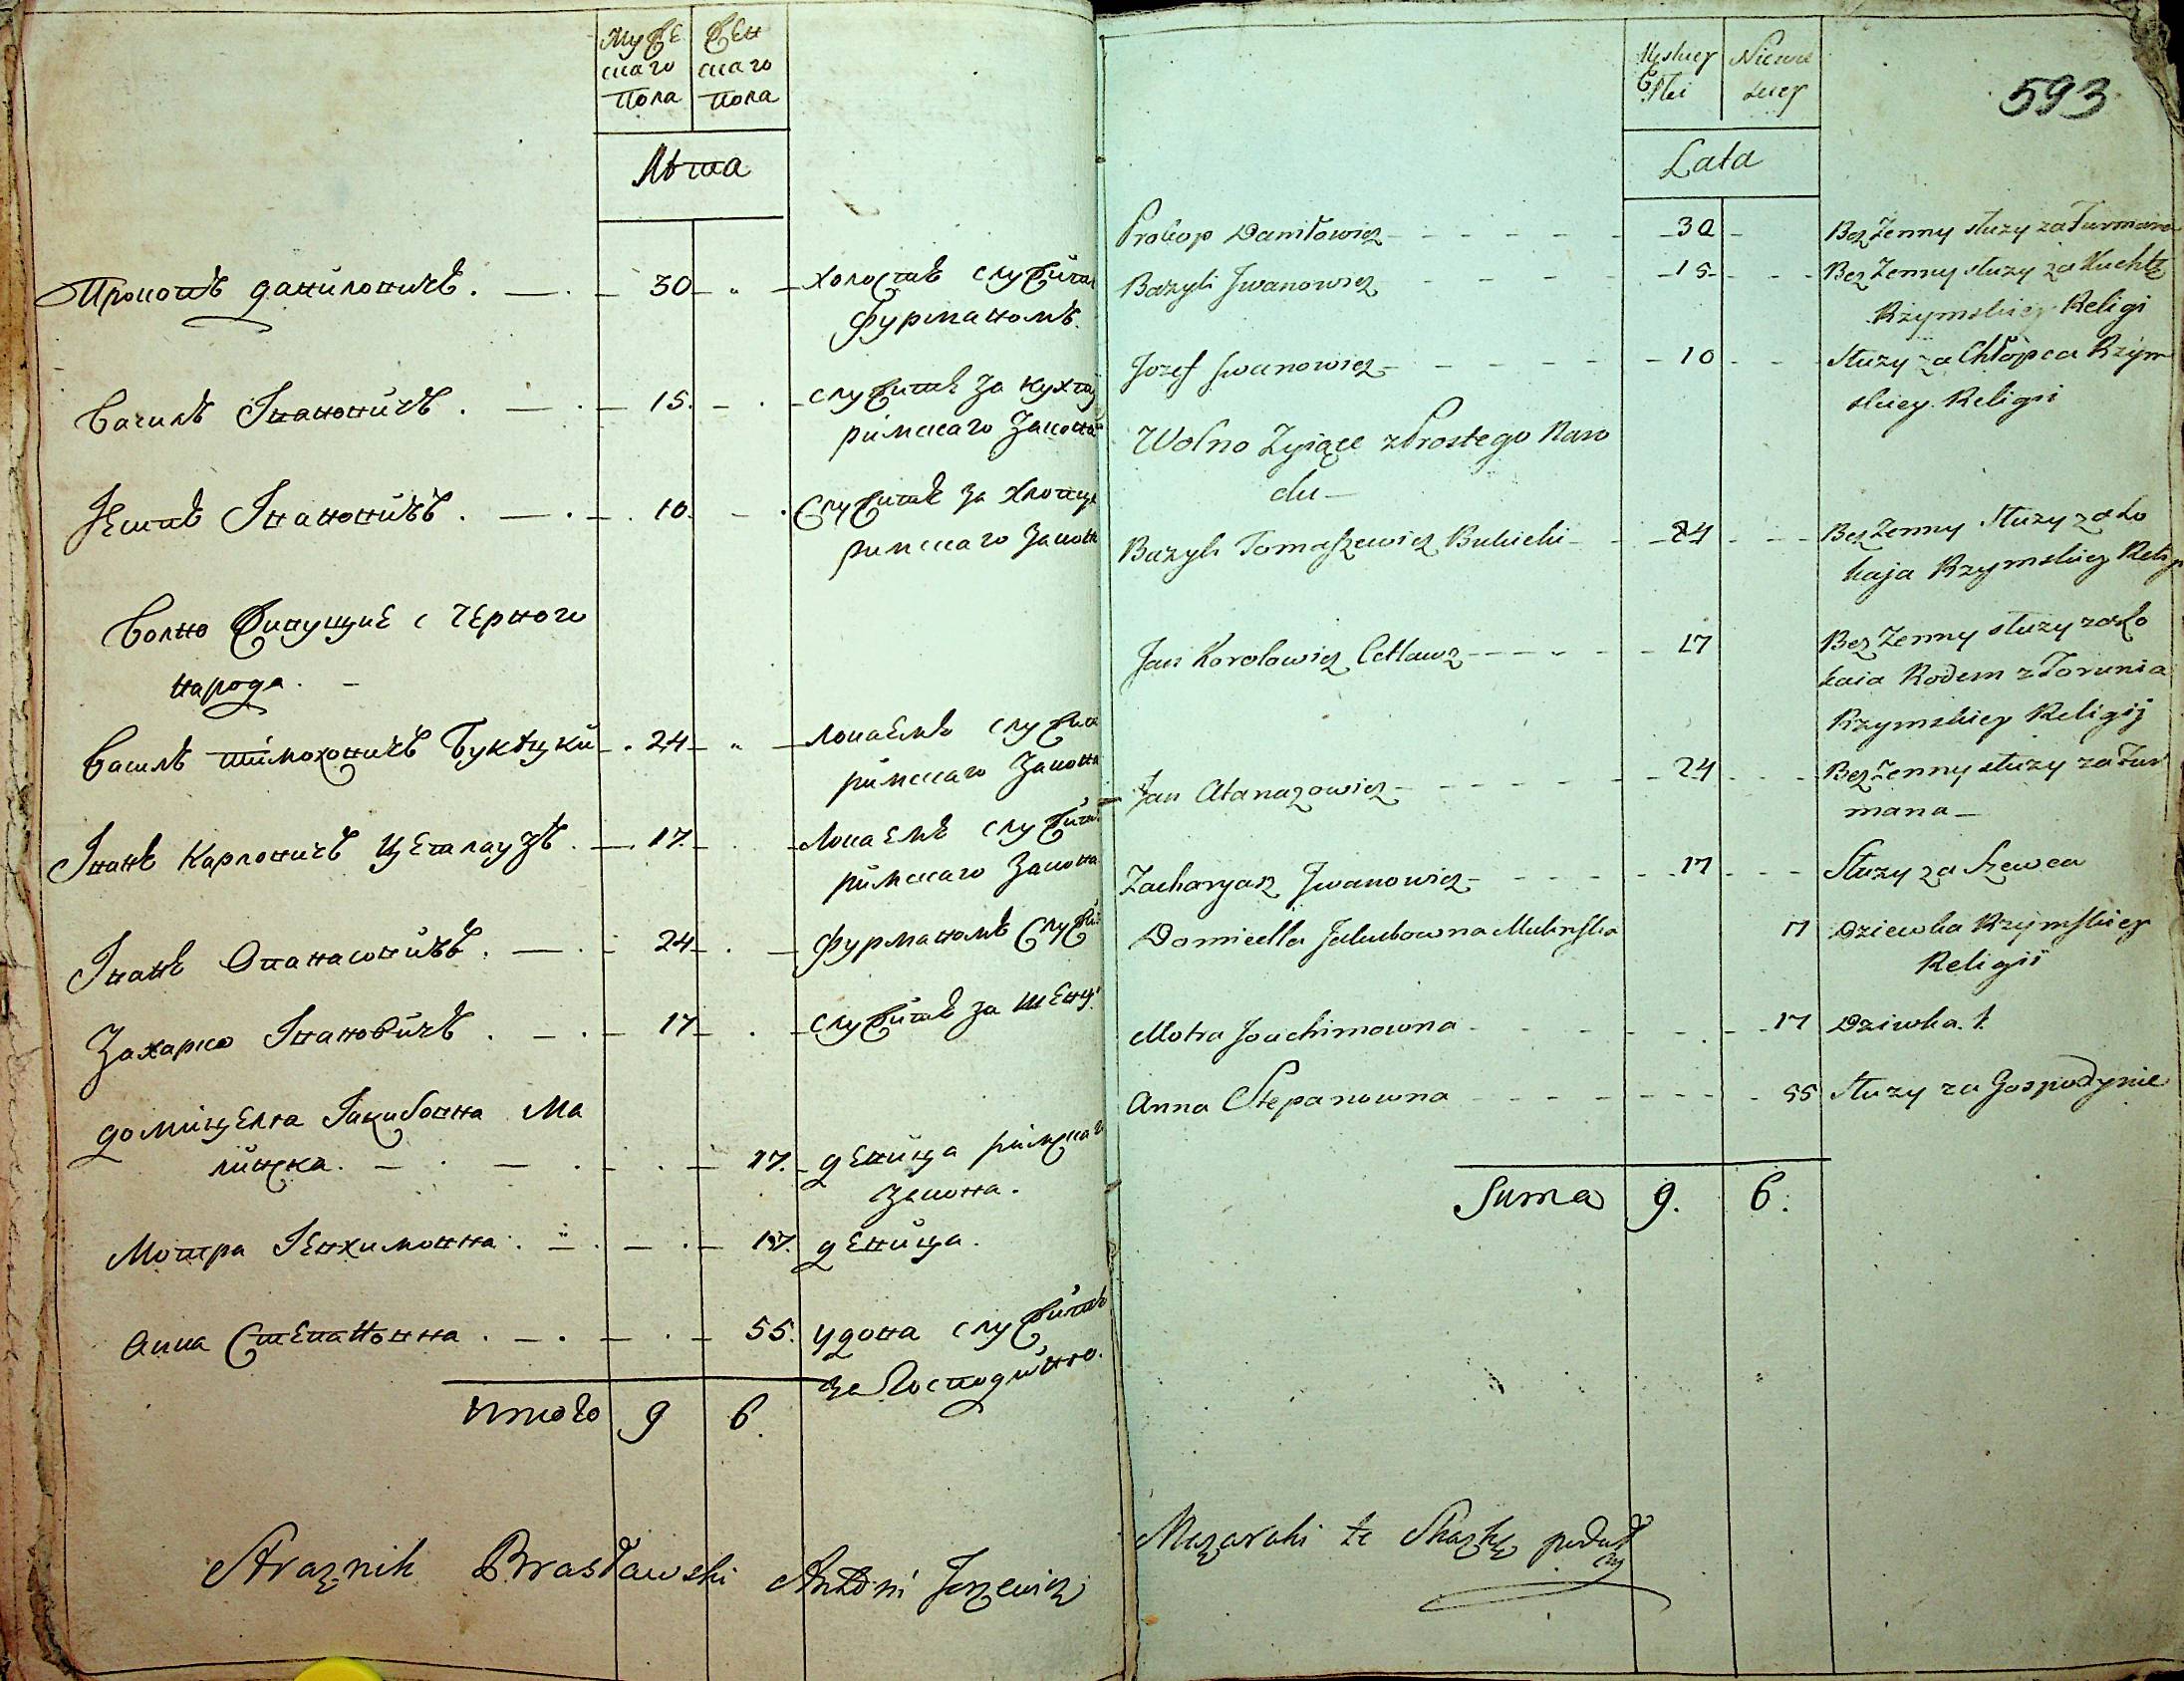 Муже
скаго
пола
Жен
скаго
пола
Лѣта
Прокопъ Даниловичъ. 30 „ холостъ служитъ
фурманомъ.
Василь Івановичъ. 15. служитъ за кухту
римскаго закона
Іосипъ Івановичъ. 10. служитъ за хлопца
римскаго закона
Волно живущие с черного
народа.
Василь Тимоховичъ Букацки 24 „ локаемъ служитъ
римскаго закона
Іванъ Карловичъ Цетлаузъ. 17. локаемъ служитъ
римскаго закона
Іванъ Опанасовичъ. 24 фурманомъ служитъ
Захарко Івановичъ. 17 служитъ за шевца
Домицелла Іакубовна Ма
линска. 17. девица римскаго
закона.
Мотра Іевхимовна. 17. девица.
Анна Степановна. 55. удова служитъ
за господиню.
итого 9 6.
Straznik Brasławski Antoni Jerzewicz
593
Męskiey
Płci
Niewie
skiey
Lata
Prokop Daniłowicz 30 Bez Zenny słuzy za Furmana
Bazyli Jwanowicz 15 Bez Zenny słuzy za Kuchtę
Rzymskiey Religi
Jozef Jwanowicz 10 Słuzy za Chłopca Rzym
skiey Religii
Wolno Zyiące z Prostego Naro
du
Bazyli Tomaszewicz Bukicki 24 Bez Zenny Słuzy za Lo
kaja Rzymskiey Relig
Jan Karolowicz Cetlawz 17 Bez Zenny słuzy za Lo
kaia Rodem z Torunia
Rzymskiey Religij
Jan Atanazowicz 24 Bez Zenny słuzy za Fur
mana
Zacharyasz Jwanowicz 17 Słuzy za Szewca
Domicella Jakubowna Malinska 17 Dziewka Rzymskiey
Religii
Motra Joachimowna 17 Dziwka
Anna Stepanowna 55 Słuzy za Gospodynie
Suma 9. 6.
Mazaraki te Skazkę